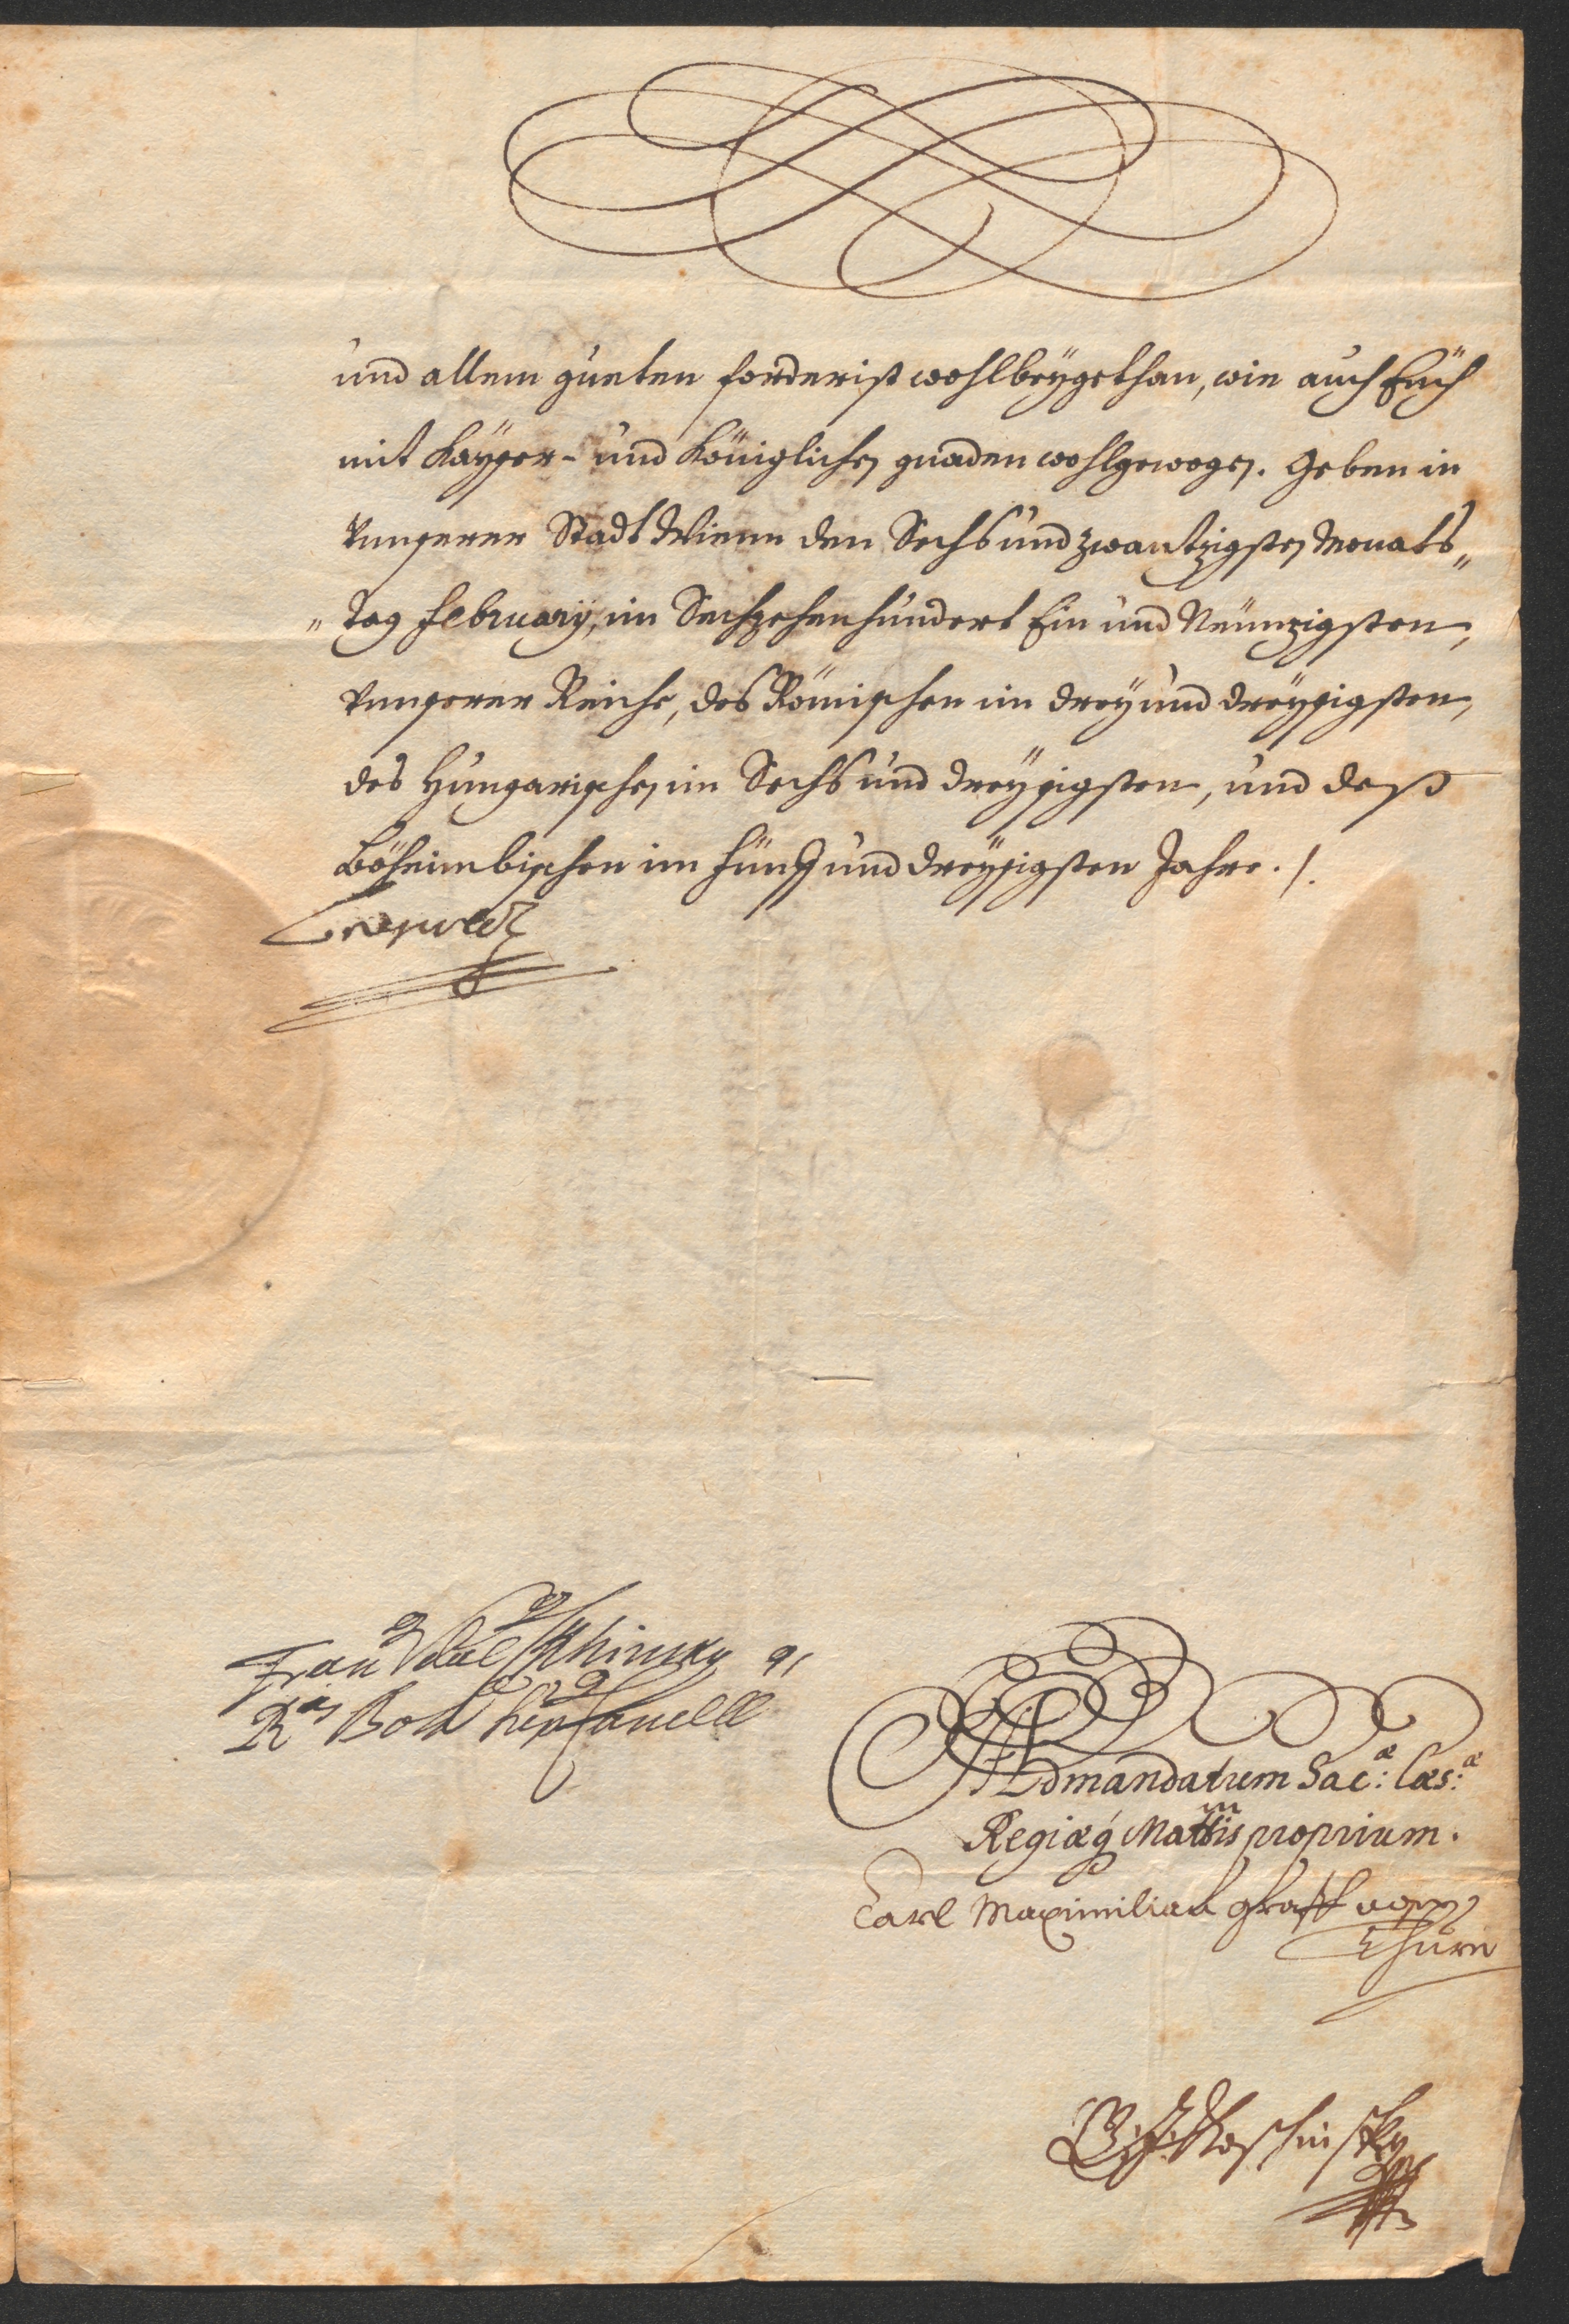 und allem gueten forderist wohlbeÿgethan, wie auch Eüch
mit Kaÿser- und Königlichen gnaden wohlgewogen. Geben in
Unnserer Stadt Wienn den Sechs und zwantzigsten Monats„
„tag Februarÿ, im Sechzehenhundert Ein und Neünzigsten,
Unnserer Reiche, des Römischen im dreÿ und dreÿssigsten,
des Hungarischen im Sechs und dreÿssigsten, und deß
Böheimbischen im fünff und dreÿssigsten Jahre ./.
Leopoldt
Khinsky
R<sup>iæ</sup> Boh
Ad mandatum Sac:æ Cæs:æ
Regiæq́ Mattis proprium.
Carl Maximilian Graff von
Thurn